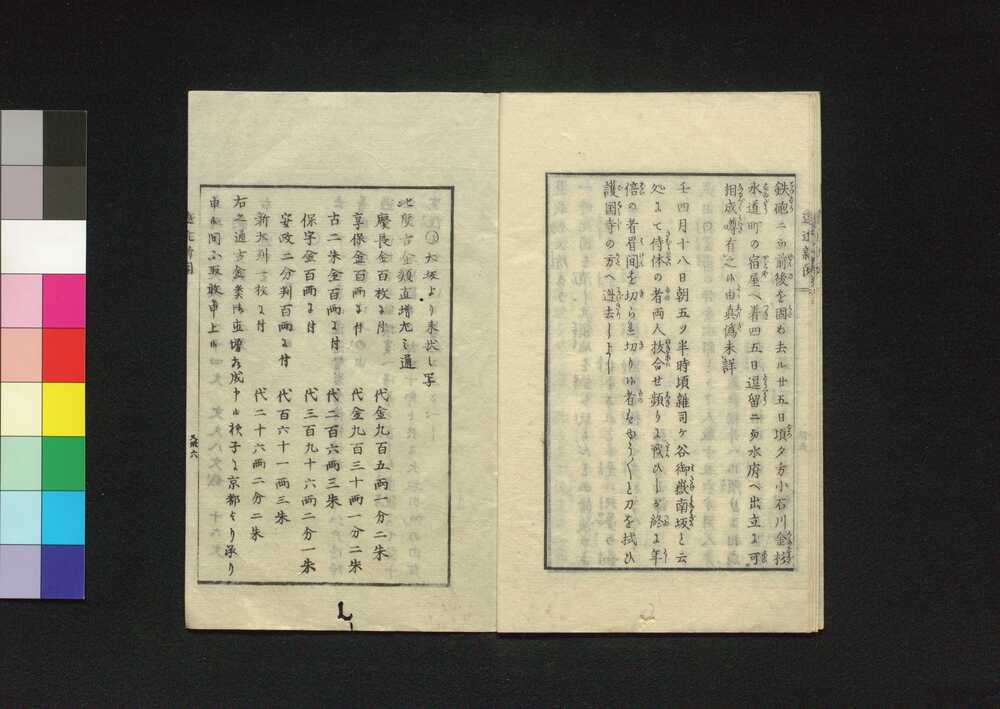 鉄砲ニ而前後を固め去ル廿五日頃夕方小石川金杉
水道町の宿屋へ着四五日逗留ニ而水府へ出立に可
相成噂有之候由真偽未詳
壬四月十八日朝五ツ半時頃雑司ケ谷御嶽南坂と云
処にて侍体の者両人抜合せ頻りに戦ひしが終に年
倍の者眉間を切られ切り候者もゆう〳〵と刀を拭ひ
護国寺の方へ逃去しより
大坂より来状し写
此度古金類直増左之通
慶長金百枚に付 代金九百五両一分二朱
享保金百両に付 代金九百三十両一分二朱
古二朱金百両に付 代二百六両三朱
保字金百両に付 代三百九十六両二分一朱
安政二分判百両に付 代百六十一両三朱
新大判壱枚に付 代二十六両二分二朱
右之通古金類御直増相成申候秧子に京都より承り
申候間不取敢申上候
六